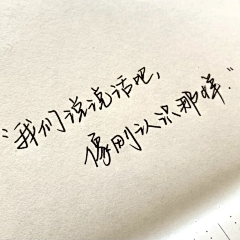 "我们说说话吧，
像刚认识那样."